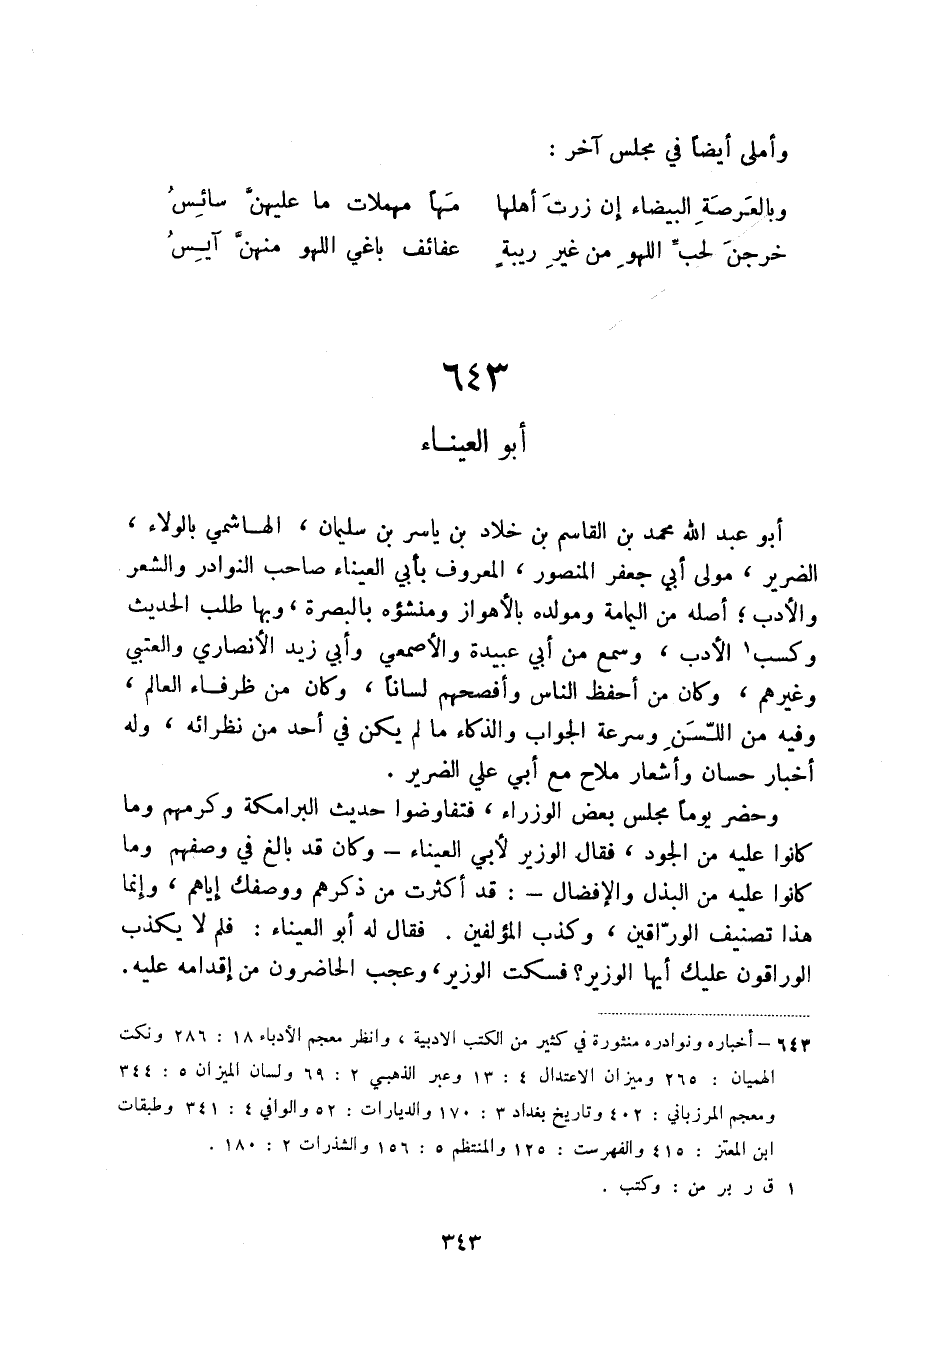 وأملى أيضاً في مجلس آخر :
وبالعَرصَةِ البيضاء إن زرتَ أهلها مَهاً مهملات ما عليهنَّ سائسُ
خرجنَ لحبِّ اللهوِ من غيرِ ريبةٍ عفائف باغي اللهو منهنَّ آيسُ
٦٤٣
أبو العيناء
أبو عبد الله محمد بن القاسم بن خلاد بن ياسر بن سليمان ، الهاشمي بالولاء ،
الضرير ، مولى أبي جعفر المنصور ، المعروف بأبي العيناء صاحب النوادر والشعر
والأدب ؛ أصله من اليمامة ومولده بالأهواز ومنشؤه بالبصرة ، وبها طلب الحديث
وكسب١ الأدب ، وسمع من أبي عبيدة والأصمعي وأبي زيد الأنصاري والعتبي
وغيرهم ، وكان من أحفظ الناس وأفصحهم لساناً ، وكان من ظرفاء العالم ،
وفيه من اللَّسَنِ وسرعة الجواب والذكاء ما لم يكن في أحد من نظرائه ، وله
أخبار حسان وأشعار ملاح مع أبي علي الضرير .
وحضر يوماً مجلس بعض الوزراء ، فتفاوضوا حديث البرامكة وكرمهم وما
كانوا عليه من الجود ، فقال الوزير لأبي العيناء – وكان قد بالغ في وصفهم وما
كانوا عليه من البذل والإفضال – : قد أكثرت من ذكرهم ووصفك إياهم ، وإنما
هذا تصنيف الورّاقين ، وكذب المؤلفين . فقال له أبو العيناء : فلم لا يكذب
الوراقون عليك أيها الوزير؟ فسكت الوزير، وعجب الحاضرون من إقدامه عليه.
٦٤٣ – أخباره ونوادره منثورة في كثير من الكتب الادبية ، وانظر معجم الأدباء ١٨ : ٢٨٦ ونكت
الهميان : ٢٦٥ وميزان الاعتدال ٤ : ١٣ وعبر الذهبي ٢ : ٦٩ ولسان الميزان ٥ : ٣٤٤
ومعجم المرزباني : ٤٠٢ وتاريخ بغداد ٣ : ١٧٠ والديارات : ٥٢ والوافي ٤ : ٣٤١ وطبقات
ابن المعتز : ٤١٥ والفهرست : ١٢٥ والمنتظم ٥ : ١٥٦ والشذرات ٢ : ١٨٠ .
١ ق ر بر من : وكتب .
٣٤٣